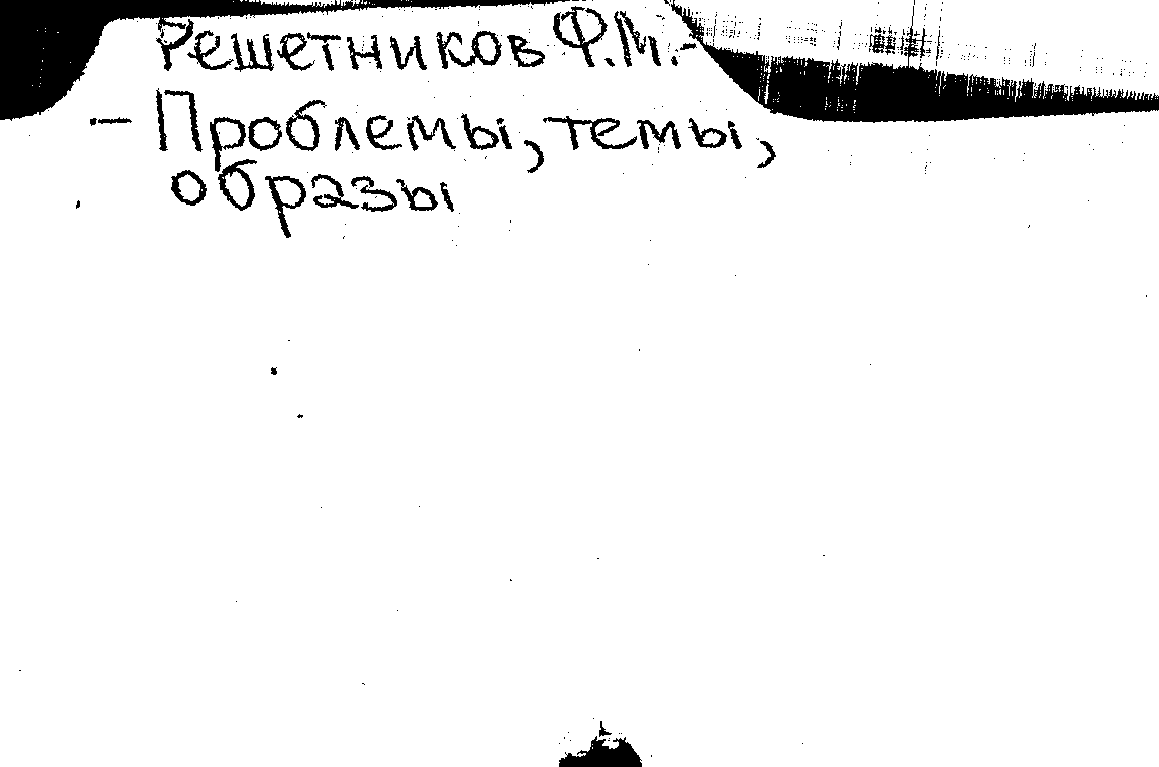 Решетников Ф.М.-
- Проблемы, темы,
образы